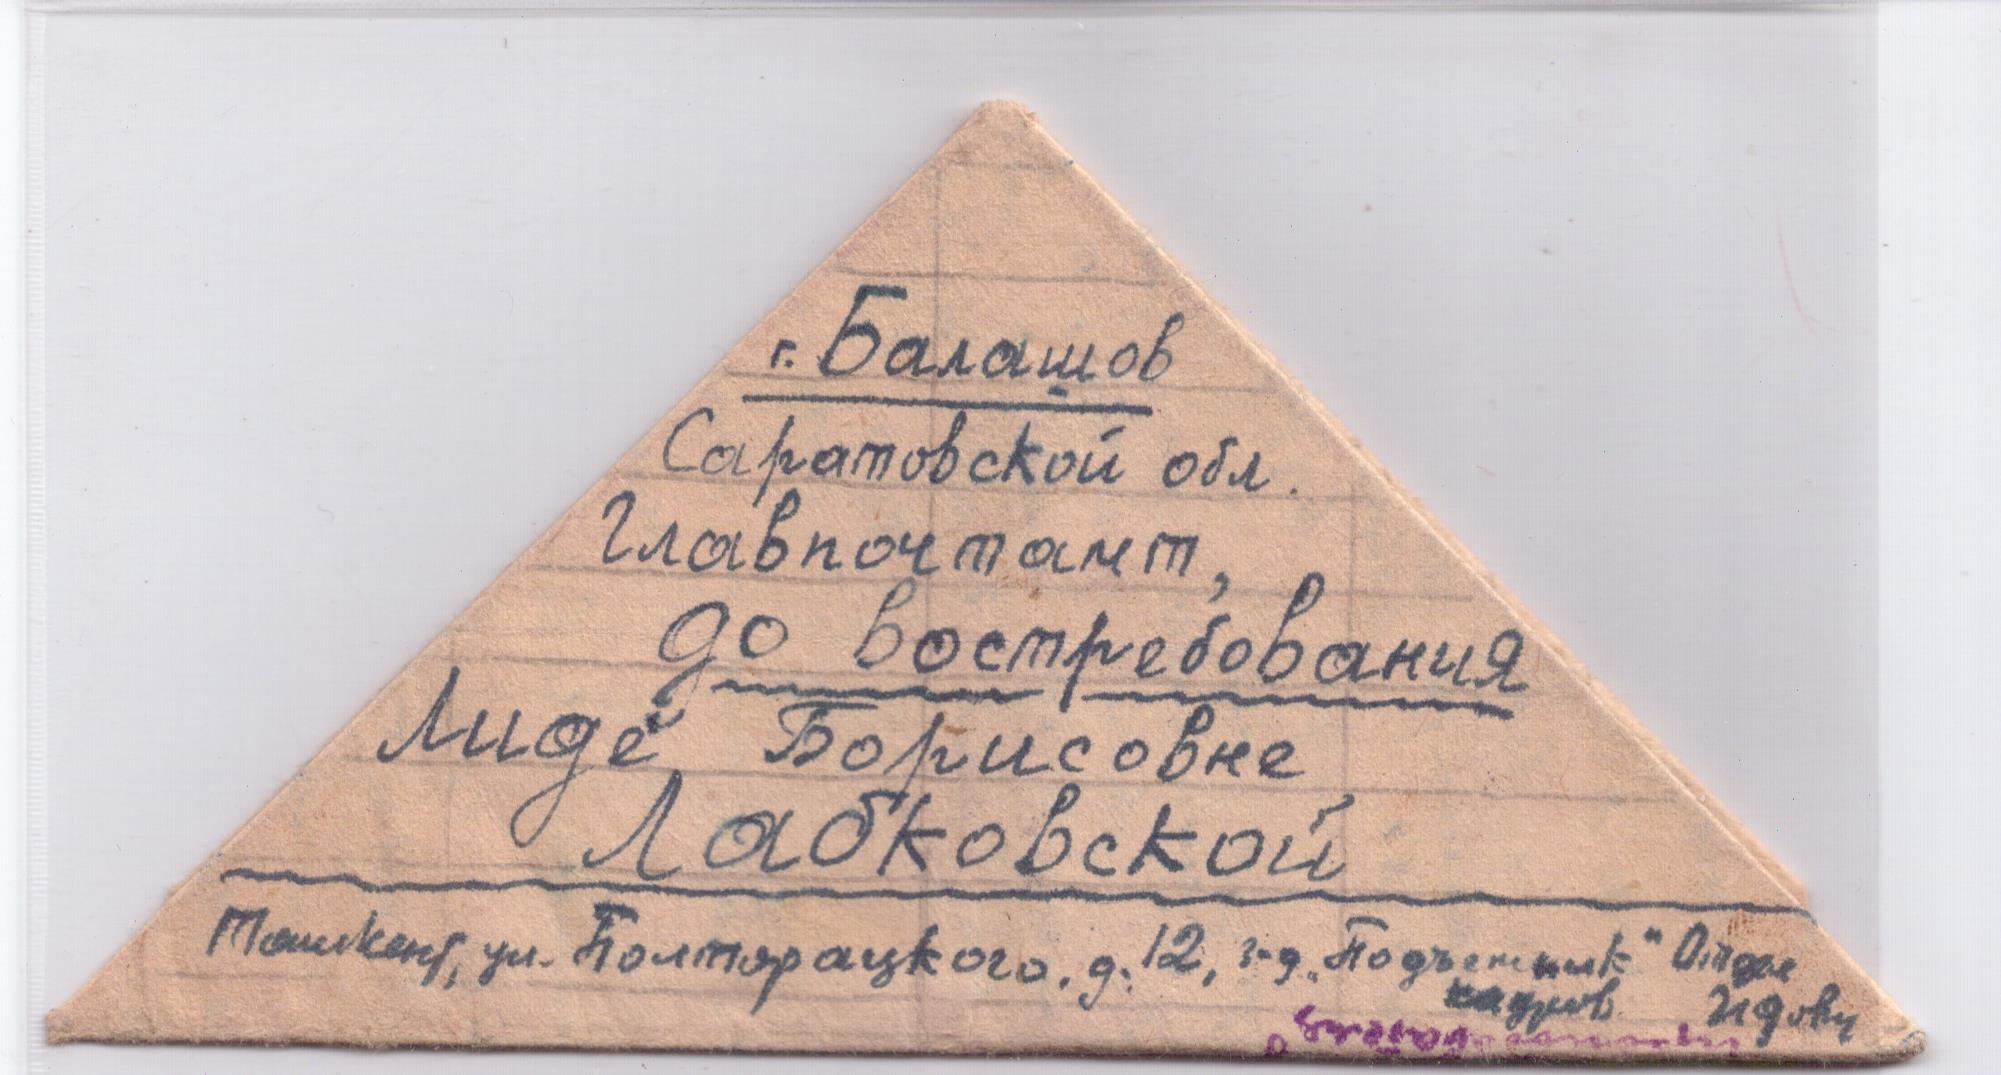 г. Балашов
Саратовской обл.
Главпочтамт,
до востребования
Лиде Борисовне
Лабковской
Ташкент, ул. Полторацкого, д. 12, з-д „Подъемник“ Отдел
кадров Идову